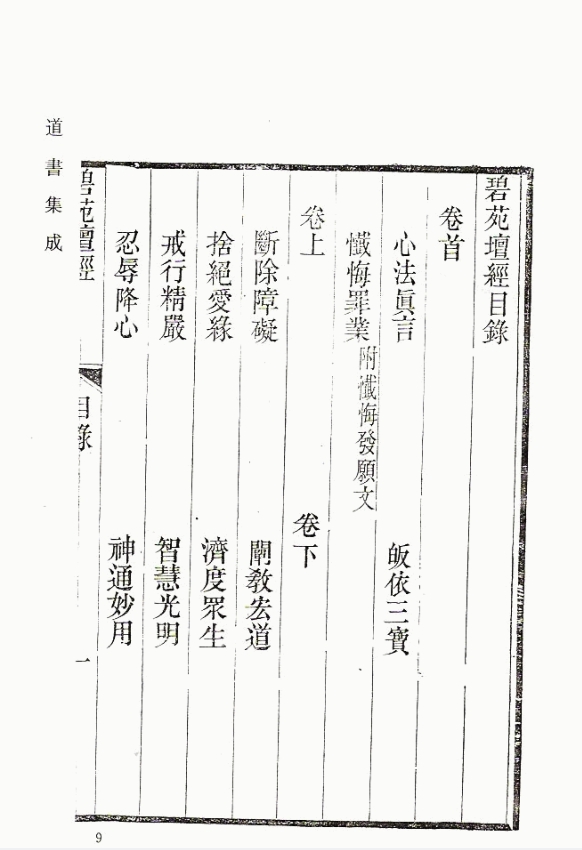 碧苑壇經目錄
卷首
心法眞言
皈依三寶
懺悔罪業附懺悔發願文
卷上
卷下
斷除障礙
闡教宏道
捨絕愛緣
濟度眾生
戒行精嚴
智慧光明
忍辱降心
神通妙用
碧苑壇經
目錄
一
道書集成
9